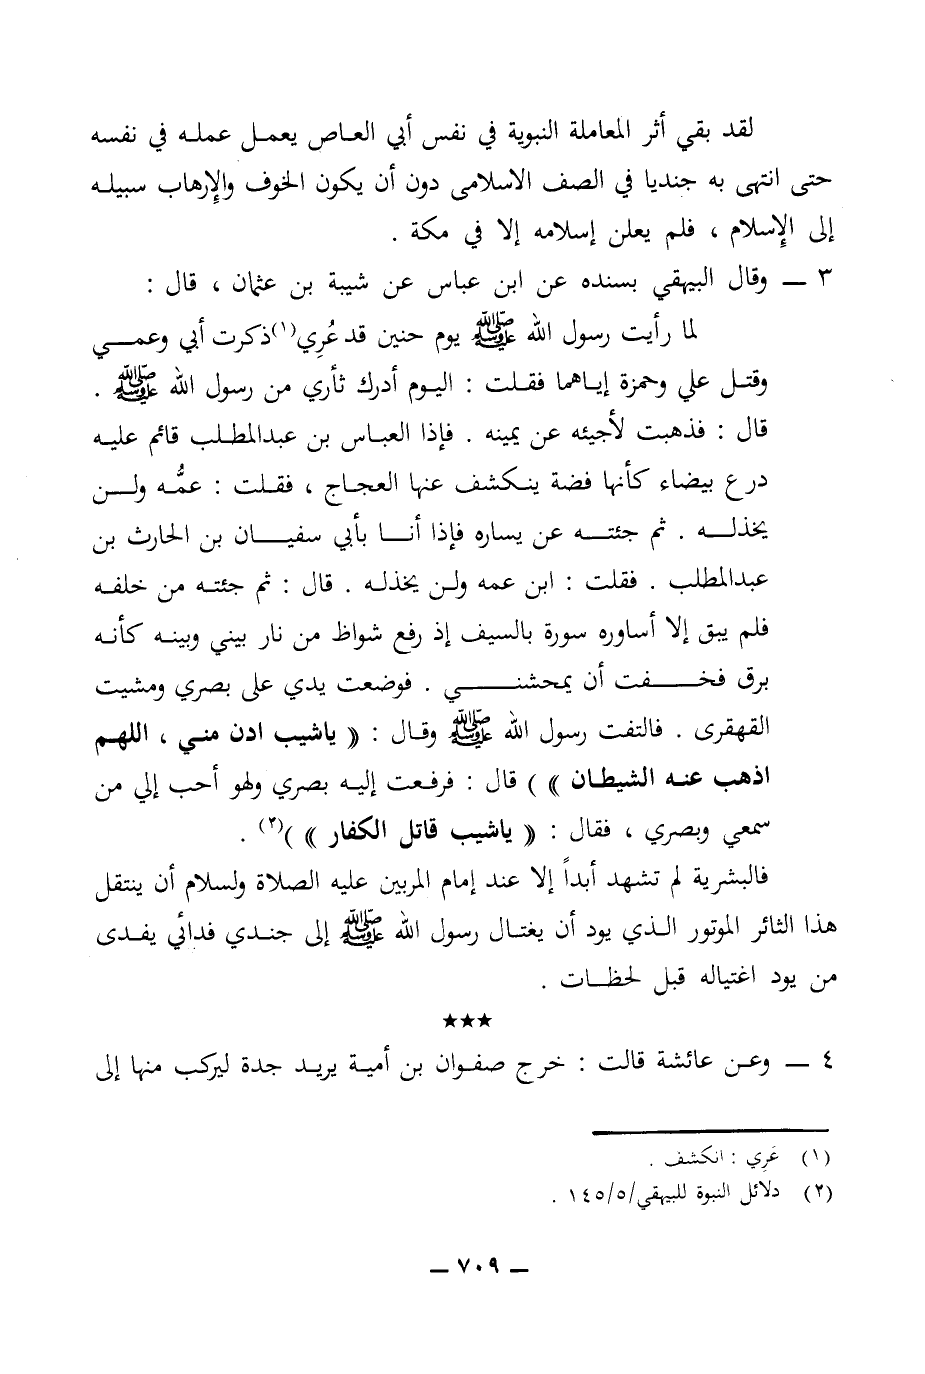 لقد بقي أثر المعاملة النبوية في نفس أبي العاص يعمل عمله في نفسه
حتى انتهى به جنديا في الصف الاسلامى دون أن يكون الخوف والإرهاب سبيله
إلى الإسلام ، فلم يعلن إسلامه إلا في مكة .
٣ ــ وقال البيهقي بسنده عن ابن عباس عن شيبة بن عثمان ، قال :
لما رأيت رسول الله ﷺ يوم حنين قد عُرِي(١)ذكرت أبي وعمي
وقتل علي وحمزة إياهما فقلت : اليوم أدرك ثأري من رسول الله ﷺ .
قال : فذهبت لأجيئه عن يمينه . فإذا العباس بن عبدالمطلب قائم عليه
درع بيضاء كأنها فضة ينكشف عنها العجاج ، فقلت : عمُّه ولن
يخذله . ثم جئته عن يساره فإذا أنا بأبي سفيان بن الحارث بن
عبدالمطلب . فقلت : ابن عمه ولن يخذله . قال : ثم جئته من خلفه
فلم يبق إلا أساوره سورة بالسيف إذ رفع شواظ من نار بيني وبينه كأنه
برق فخفت أن يمحشني . فوضعت يدي على بصري ومشيت
القهقرى . فالتفت رسول الله ﷺ وقال : « ياشيب ادن مني ، اللهم
اذهب عنه الشيطان » ) قال : فرفعت إليه بصري ولهو أحب إلي من
سمعي وبصري ، فقال : « ياشيب قاتل الكفار » )(٢) .
فالبشرية لم تشهد أبداً إلا عند إمام المربين عليه الصلاة ولسلام أن ينتقل
هذا الثائر الموتور الذي يود أن يغتال رسول الله ﷺ إلى جندي فدائي يفدى
من يود اغتياله قبل لحظات .
★★★
٤ ــ وعن عائشة قالت : خرج صفوان بن أمية يريد جدة ليركب منها إلى
(١) عَرِي : انكشف .
(٢) دلائل النبوة للبيهقي/١٤٥/٥ .
ــ ٧٠٩ ــ